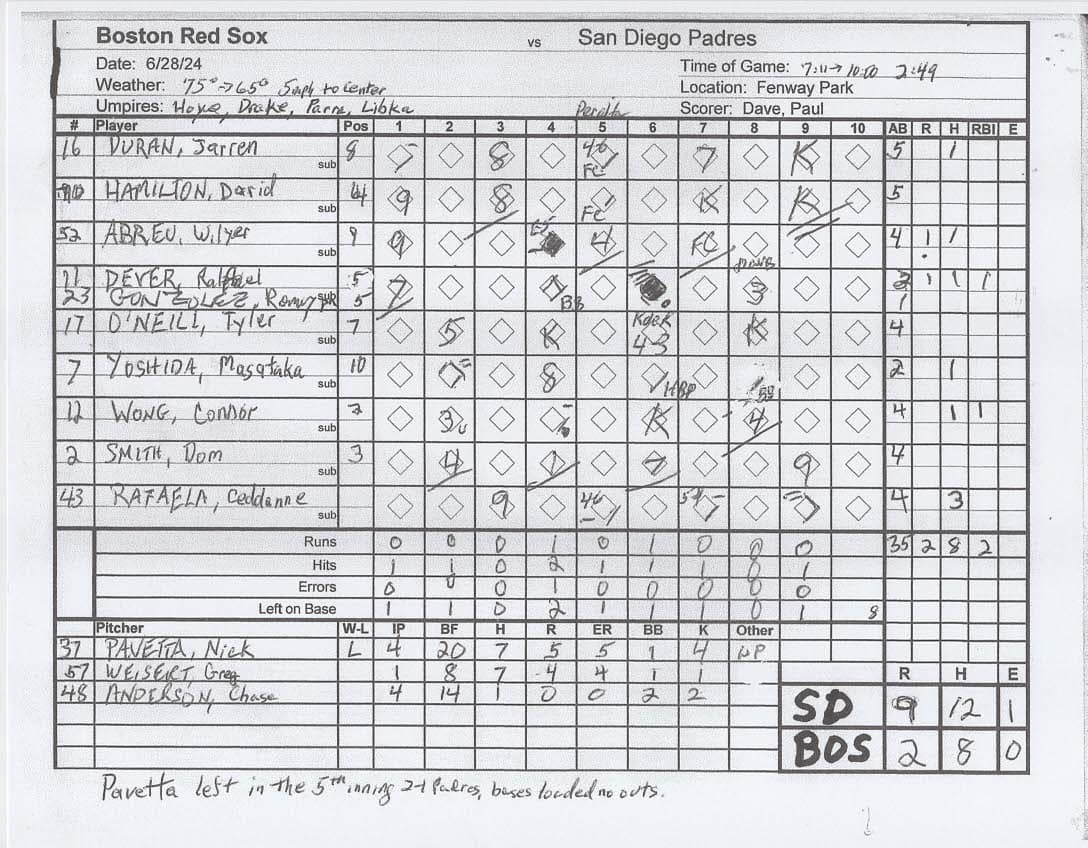 Boston Red Sox vs San Diego Padres
Date: 6/28/24 Time of Game: 7:11→10:00 2:49
Weather: 75°→65° 5mph to center Location: Fenway Park
Umpires: Hoye, Drake, Parra, Libka Peralta Scorer: Dave, Paul
# Player Pos 1 2 3 4 5 6 7 8 9 10 AB R H RBI E
16 DURAN, Jarren 8 8 46 FC 7 K 5 1
sub
HAMILTON, David 4 9 8 FC K K 5
sub
52 ABREU, Wilyer 9 9 4 FC 4 1 1
sub
11 DEVER, Rafael 5 7 BB 3 1 1 1
23 GONZOLEZ, Romy sub 5 3 1
17 O'NEILL, Tyler 7 5 K 4-3 K 4
sub
7 YOSHIDA, Masataka 10 8 HBP 2 1
sub
12 WONG, Connor 2 3u K 4 4 1 1
sub
2 SMITH, Dom 3 4 7 9 4
sub
43 RAFAELA, Ceddanne 9 46 4 3
sub
Runs 0 0 0 1 0 1 0 0 0 35 2 8 2
Hits 1 1 0 2 1 1 1 0 1
Errors 0 0 0 1 0 0 0 0 0
Left on Base 1 1 0 2 1 1 1 0 1 8
Pitcher W-L IP BF H R ER BB K Other
37 PAVETTA, Nick L 4 20 7 5 5 1 4 WP
57 WEISERT, Greg 1 8 7 4 4 1 1
48 ANDERSON, Chase 4 14 1 0 0 2 2
R H E
SD 9 12 1
BOS 2 8 0
Pavetta left in the 5th inning 2-1 Padres, bases loaded no outs.